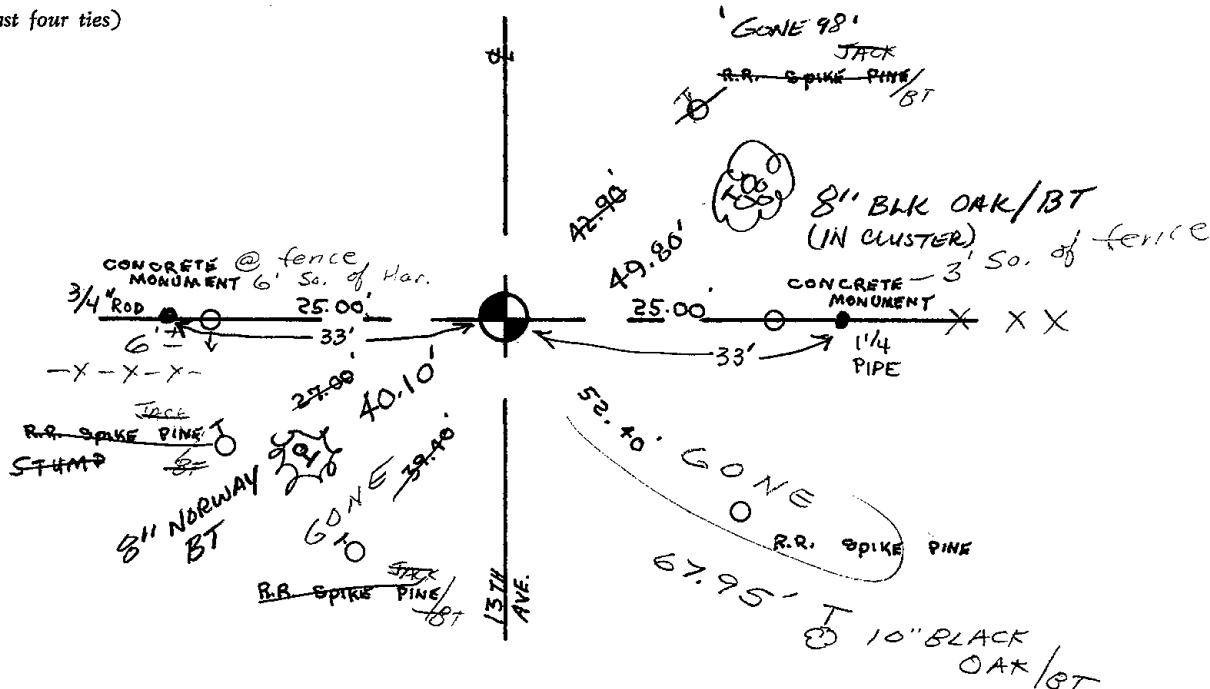 ast four ties)
℄
'GONE 98'
JACK
R.R. SPIKE PINE/BT
42.90'
49.80'
8" BLK OAK/BT
(IN CLUSTER)
CONCRETE MONUMENT
@ fence
6' So. of Har.
3/4" ROD
25.00'
33'
6'
-X-X-X-
25.00'
CONCRETE MONUMENT
3' So. of fence
X X X
33'
1 1/4 PIPE
27.00'
40.10'
JACK
R.R. SPIKE PINE
STUMP
8" NORWAY
BT
GONE
39.40'
JACK
R.R. SPIKE PINE/BT
13TH AVE.
52.40'
GONE
R.R. SPIKE PINE
67.95'
10" BLACK
OAK/BT